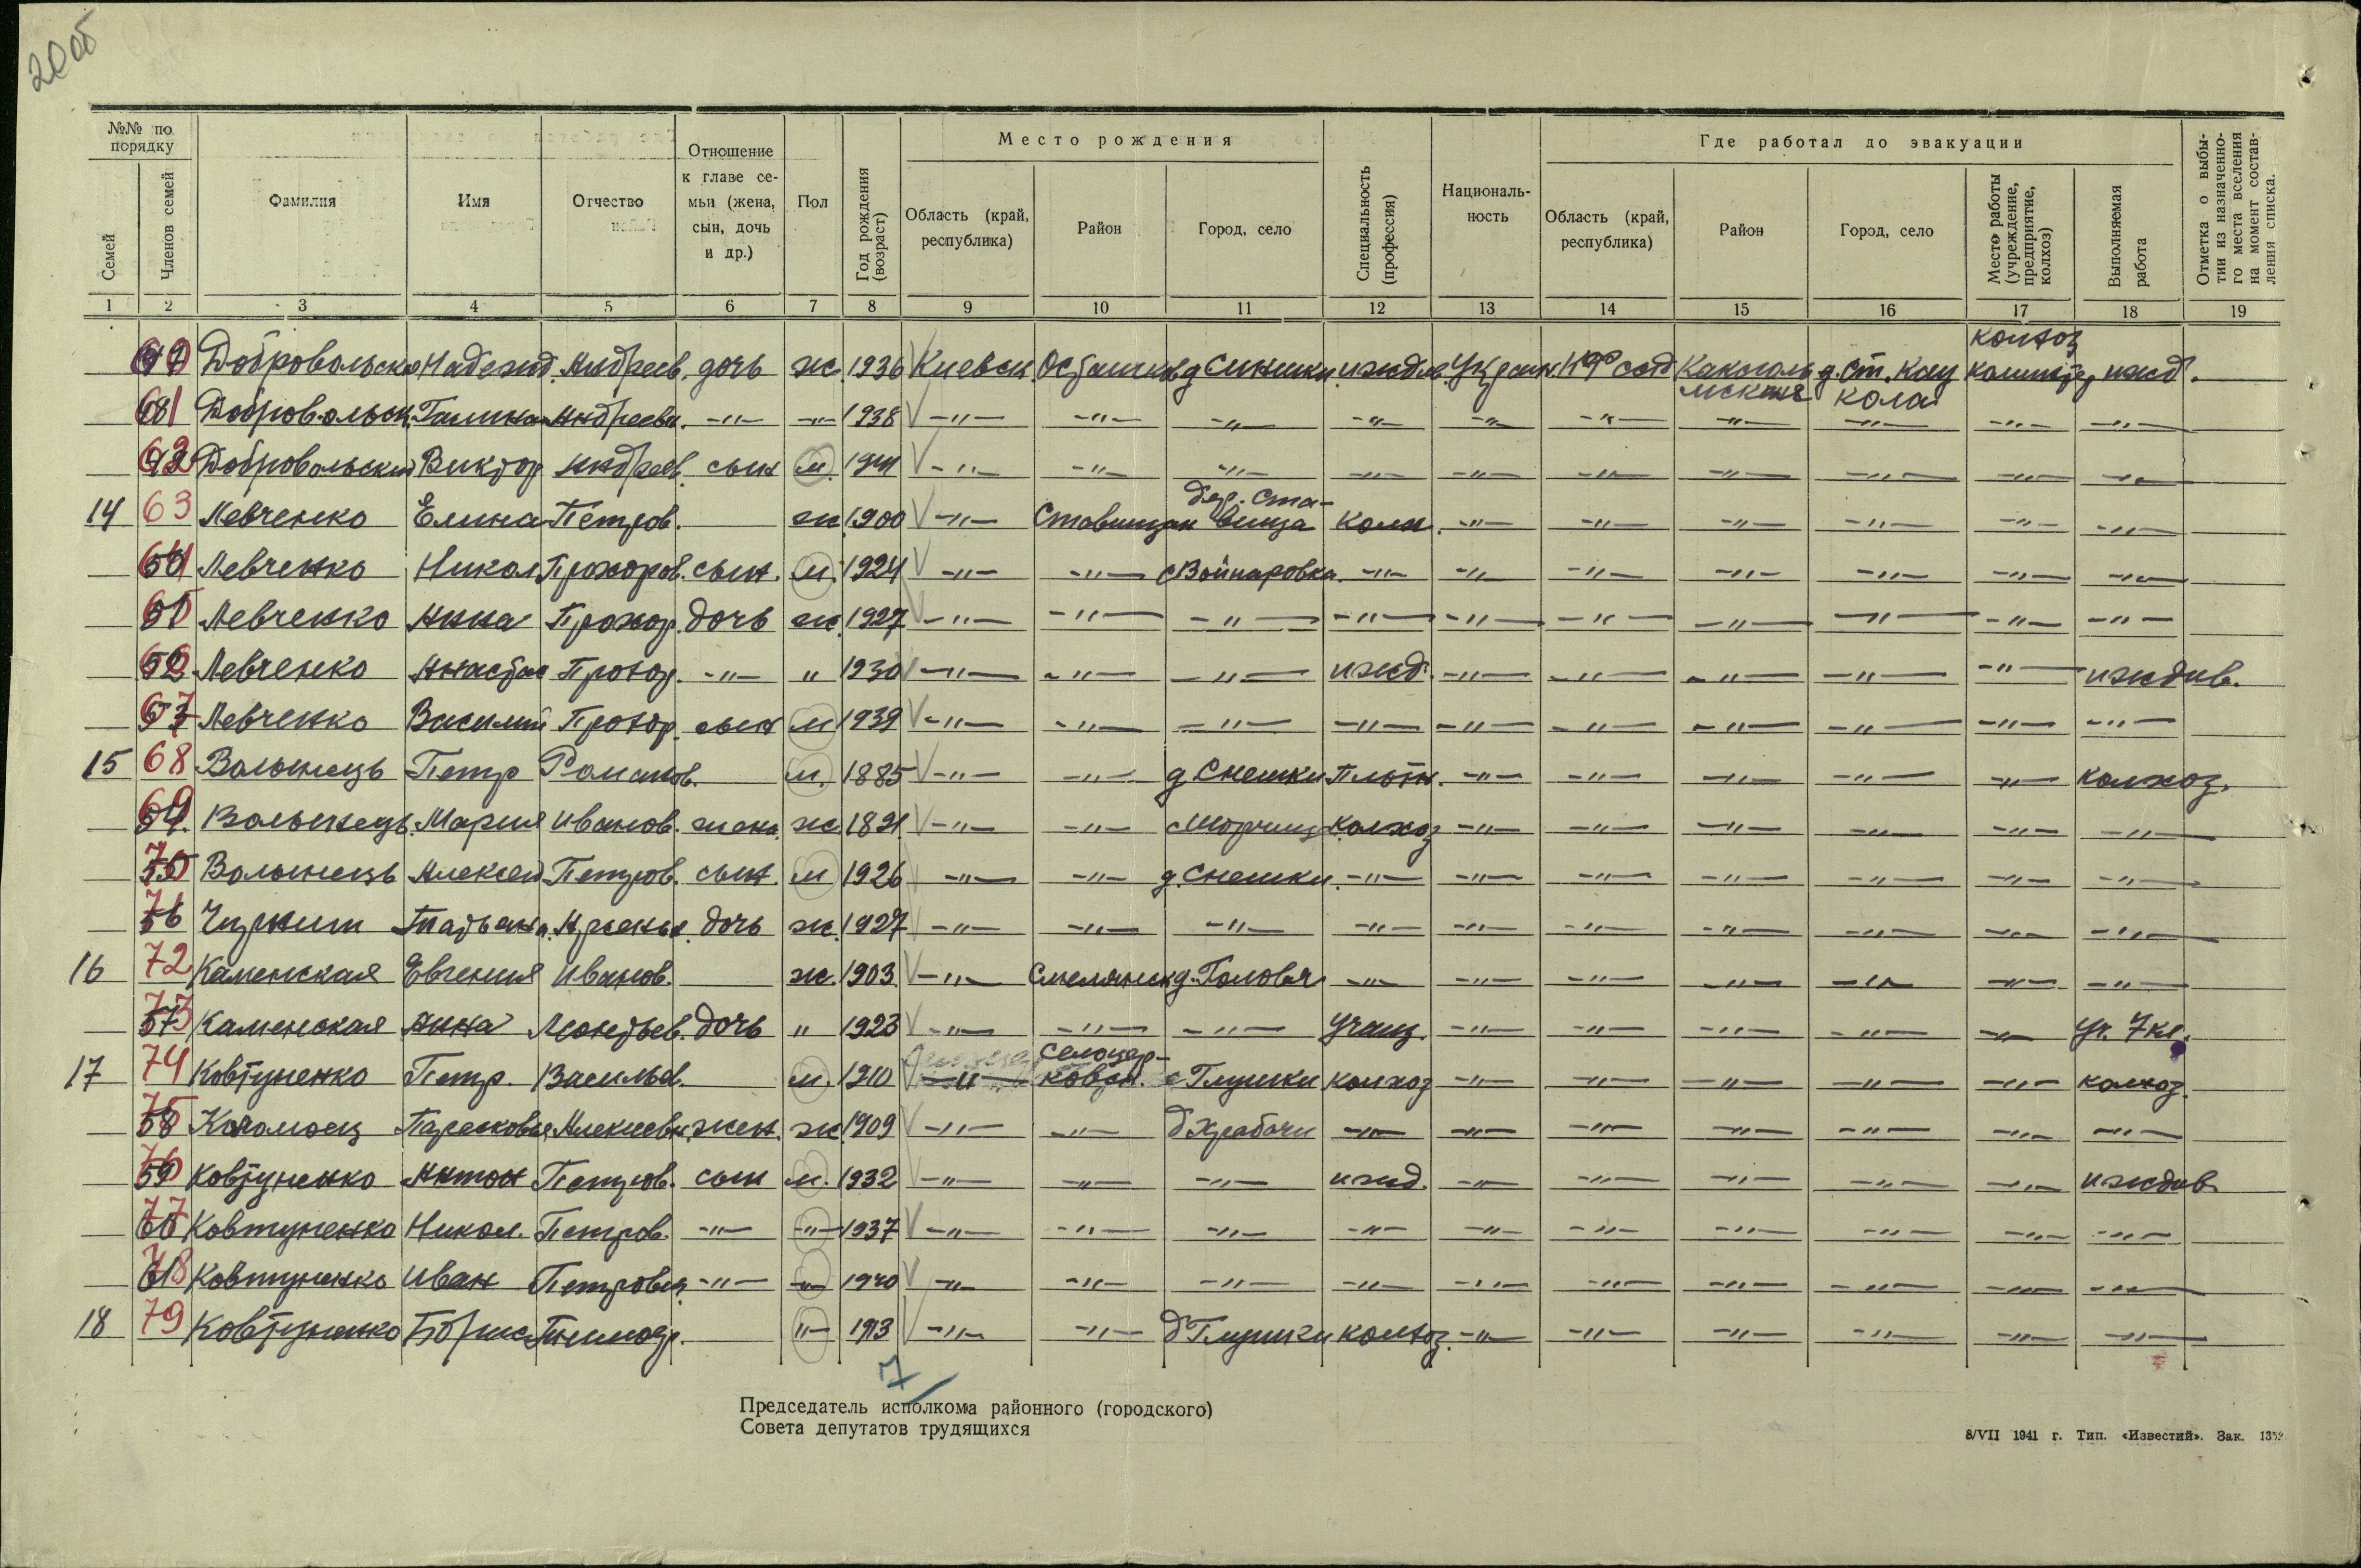 20об
№№ по порядку
Семей
Членов семей
Фамилия
Имя
Отчество
Отношение к главе семьи (жена, сын, дочь и др.)
Пол
Год рождения (возраст)
Место рождения
Область (край, республика)
Район
Город, село
Специальность (профессия)
Националь-
ность
Где работал до эвакуации
Область (край, республика)
Район
Город, село
Место работы (учреждение, предприятие, колхоз)
Выполняемая работа
Отметка о выбы-
тии из назначенно-
го места вселения
на момент состав-
ления списка.
1 2 3 4 5 6 7 8 9 10 11 12 13 14 15 16 17 18 19
колхоз
60 Надежд. Андреев. дочь ж. 1936 Киевск. ижд.
61 Доброволь́ск. Галина Андреевн. -"- -"- 1938 -"- -"- -"- -"- -"- -"- -"- -"- -"- -"-
62 Добровольский Виктор Андреев. сын м. 1941 -"- -"- -"- -"- -"- -"- -"- -"- -"- -"-
дер. Ста-
14 63 Левченко Елина Петров. ж. 1900 -"- вища колх. -"- -"- -"- -"- -"- -"-
64 Левченко Никол. Прохоров. сын. м. 1924 -"- -"- с Войнаровка -"- -"- -"- -"- -"- -"- -"-
65 Левченко Анна Прохор. дочь ж. 1927 -"- -"- -"- -"- -"- -"- -"- -"- -"- -"-
66 Левченко Анастас Прохор. -"- " 1930 -"- -"- -"- ижд. -"- -"- -"- -"- -"- иждив.
67 Левченко Василий Прохор. сын м 1939 -"- -"- -"- -"- -"- -"- -"- -"- -"- -"-
15 68 Волынець Петр Романов. м. 1885 -"- -"- д Снешки Плотн. -"- -"- -"- -"- -"- колхоз.
69 Волынець Мария Иванов. жена ж. -"- -"- колхоз -"- -"- -"- -"- -"- -"-
70 Волынець Алексей Петров. сын. м 1926 -"- -"- д. Снешки -"- -"- -"- -"- -"- -"- -"-
71 Татьяна дочь ж. 1927 -"- -"- -"- -"- -"- -"- -"- -"- -"- -"-
16 72 Каменская Евгения Иванов. ж. 1903 -"- Смелянск -"- -"- -"- -"- -"- -"- -"-
73 Каменская Анна Леонтьев. дочь " 1923 -"- -"- -"- учащ. -"- -"- -"- -"- -"- уч. 7 кл.
17 74 Ковтуненко Петр. Васильев. м. 1910 -"- с Глушки колхоз -"- -"- -"- -"- -"- колхоз.
75 Алексеевн. жен. ж 1909 -"- -"- -"- -"- -"- -"- -"- -"- -"-
76 Ковтуненко Антон Петров. сын м. 1932 -"- -"- -"- ижд. -"- -"- -"- -"- -"- иждив
77 Ковтуненко Никол. Петров. -"- -"- 1937 -"- -"- -"- -"- -"- -"- -"- -"- -"- -"-
78 Ковтуненко Иван Петрович -"- -"- 1940 -"- -"- -"- -"- -"- -"- -"- -"- -"- -"-
18 79 Ковтуненко Борис "- 1913 -"- -"- д Глушки колхоз. -"- -"- -"- -"- -"- -"-
7
Председатель исполкома районного (городского)
Совета депутатов трудящихся
8/VII 1941 г. Тип. «Известий». Зак.